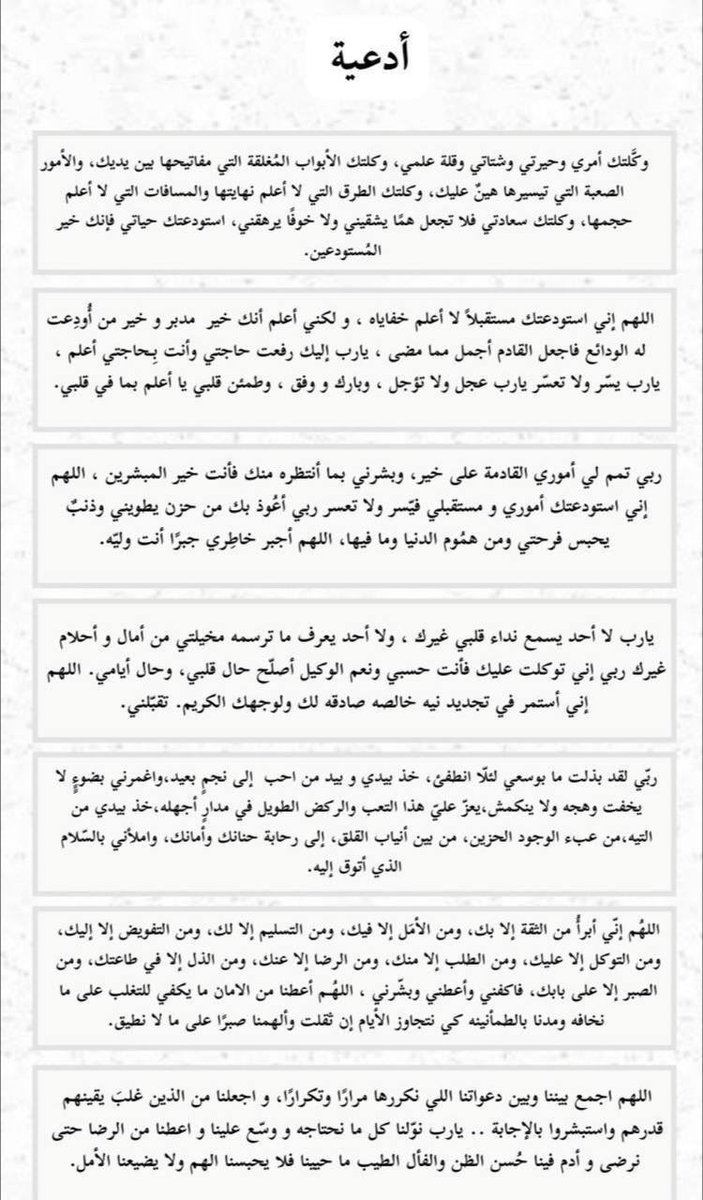 أدعية
وكَّلتك أمري وحيرتي وشتاتي وقلة علمي، وكلتك الأبواب المُغلقة التي مفاتيحها بين يديك، والأمور
الصعبة التي تيسيرها هينٌ عليك، وكلتك الطرق التي لا أعلم نهايتها والمسافات التي لا أعلم
حجمها، وكلتك سعادتي فلا تجعل همًا يشقيني ولا خوفًا يرهقني، استودعتك حياتي فإنك خير
المُستودعين.
اللهم إني استودعتك مستقبلاً لا أعلم خفاياه ، و لكني أعلم أنك خير مدبر و خير من أُودِعت
له الودائع فاجعل القادم أجمل مما مضى ، يارب إليك رفعت حاجتي وأنت بِحاجتي أعلم ،
يارب يسّر ولا تعسّر يارب عجل ولا تؤجل ، وبارك و وفق ، وطمئن قلبي يا أعلم بما في قلبي.
ربي تمم لي أموري القادمة على خير، وبشرني بما أنتظره منك فأنت خير المبشرين ، اللهم
إني استودعتك أموري و مستقبلي فيّسر ولا تعسر ربي أعُوذ بك من حزن يطويني وذنبٌ
يحبس فرحتي ومن همُوم الدنيا وما فيها، اللهم أجبر خاطِري جبرًا أنت وليّه.
يارب لا أحد يسمع نداء قلبي غيرك ، ولا أحد يعرف ما ترسمه مخيلتي من أمال و أحلام
غيرك ربي إني توكلت عليك فأنت حسبي ونعم الوكيل أصلّح حال قلبي، وحال أيامي. اللهم
إني أستمر في تجديد نيه خالصه صادقه لك ولوجهك الكريم. تقبّلني.
ربّي لقد بذلت ما بوسعي لئلّا انطفئ، خذ بيدي و بيد من احب إلى نجمٍ بعيد،واغمرني بضوءٍ لا
يخفت وهجه ولا ينكمش،يعزّ عليّ هذا التعب والركض الطويل في مدارٍ أجهله،خذ بيدي من
التيه،من عبء الوجود الحزين، من بين أنياب القلق، إلى رحابة حنانك وأمانك، واملأني بالسّلام
الذي أتوق إليه.
اللهُم إنّي أبرأُ من الثقة إلا بك، ومن الأمَل إلا فيك، ومن التسليم إلا لك، ومن التفويض إلا إليك،
ومن التوكل إلا عليك، ومن الطلب إلا منك، ومن الرضا إلا عنك، ومن الذل إلا في طاعتك، ومن
الصبر إلا على بابك، فاكفني وأعطني وبشّرني ، اللهُم أعطنا من الامان ما يكفي للتغلب على ما
نخافه ومدنا بالطمأنينه كي نتجاوز الأيام إن ثقلت وألهمنا صبرًا على ما لا نطيق.
اللهم اجمع بيننا وبين دعواتنا اللي نكررها مرارًا وتكرارًا، و اجعلنا من الذين غلبَ يقينهم
قدرهم واستبشروا بالإجابة .. يارب نوّلنا كل ما نحتاجه و وسّع علينا و اعطنا من الرضا حتى
نرضى و أدم فينا حُسن الظن والفأل الطيب ما حيينا فلا يحبسنا الهم ولا يضيعنا الأمل.